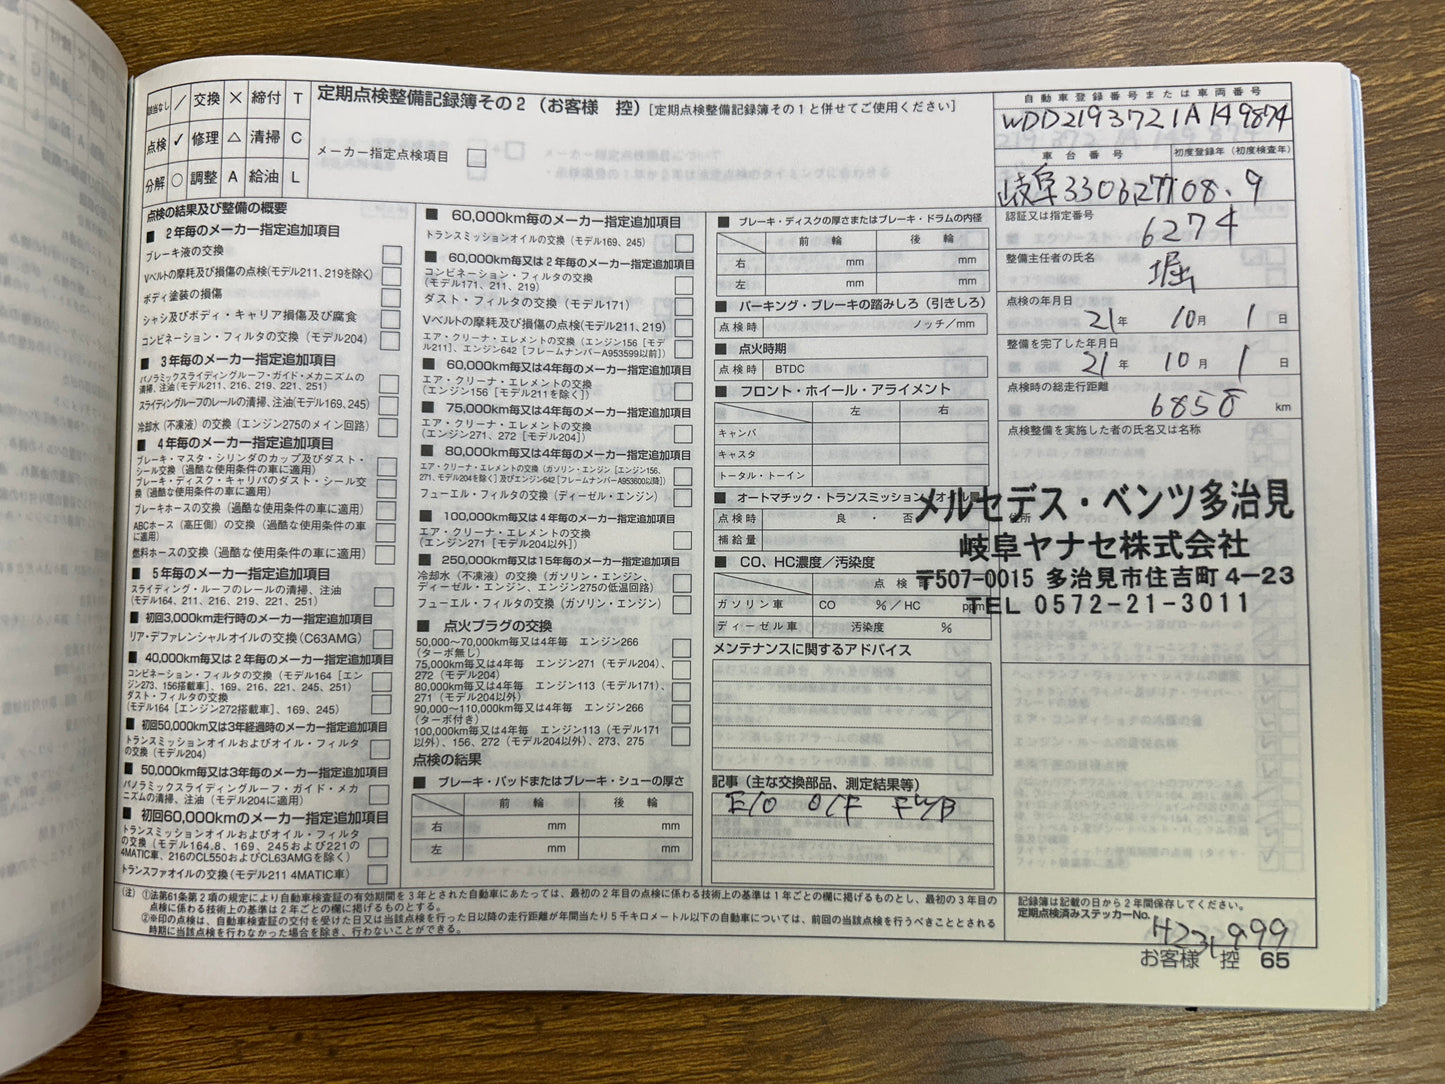 該当なし ／ 交換 × 締付 T
点検 ✓ 修理 △ 清掃 C
分解 ○ 調整 A 給油 L
定期点検整備記録簿その2（お客様　控）[定期点検整備記録簿その1と併せてご使用ください]
メーカー指定点検項目
点検の結果及び整備の概要
■ 2年毎のメーカー指定追加項目
ブレーキ液の交換
Vベルトの摩耗及び損傷の点検(モデル211、219を除く)
ボディ塗装の損傷
シャシ及びボディ・キャリア損傷及び腐食
コンビネーション・フィルタの交換（モデル204）
■ 3年毎のメーカー指定追加項目
パノラミックスライディングルーフ・ガイド・メカニズムの
清掃、注油(モデル211、216、219、221、251)
スライディングルーフのレールの清掃、注油(モデル169、245)
冷却水（不凍液）の交換（エンジン275のメイン回路）
■ 4年毎のメーカー指定追加項目
ブレーキ・マスタ・シリンダのカップ及びダスト・
シール交換（過酷な使用条件の車に適用）
ブレーキ・ディスク・キャリパのダスト・シール交
換（過酷な使用条件の車に適用）
ブレーキホースの交換（過酷な使用条件の車に適用）
ABCホース（高圧側）の交換（過酷な使用条件の車
に適用）
燃料ホースの交換（過酷な使用条件の車に適用）
■ 5年毎のメーカー指定追加項目
スライディング・ルーフのレールの清掃、注油
（モデル164、211、216、219、221、251）
■ 初回3,000km走行時のメーカー指定追加項目
リア・デファレンシャルオイルの交換（C63AMG）
■ 40,000km毎又は2年毎のメーカー指定追加項目
コンビネーション・フィルタの交換（モデル164［エン
ジン273、156搭載車］、169、216、221、245、251）
ダスト・フィルタの交換
（モデル164［エンジン272搭載車］、169、245）
■ 初回50,000km又は3年経過時のメーカー指定追加項目
トランスミッションオイルおよびオイル・フィルタ
の交換（モデル204）
■ 50,000km毎又は3年毎のメーカー指定追加項目
パノラミックスライディングルーフ・ガイド・メカ
ニズムの清掃、注油（モデル204に適用）
■ 初回60,000kmのメーカー指定追加項目
トランスミッションオイルおよびオイル・フィルタ
の交換（モデル164.8、169、245および221の
4MATIC車、216のCL550およびCL63AMGを除く）
トランスファオイルの交換（モデル211 4MATIC車）
■ 60,000km毎のメーカー指定追加項目
トランスミッションオイルの交換（モデル169、245）
■ 60,000km毎又は2年毎のメーカー指定追加項目
コンビネーション・フィルタの交換
（モデル171、211、219）
ダスト・フィルタの交換（モデル171）
Vベルトの摩耗及び損傷の点検(モデル211、219)
エア・クリーナ・エレメントの交換（エンジン156［モデ
ル211］、エンジン642［フレームナンバーA953599以前］）
■ 60,000km毎又は4年毎のメーカー指定追加項目
エア・クリーナ・エレメントの交換
（エンジン156［モデル211を除く］）
■ 75,000km毎又は4年毎のメーカー指定追加項目
エア・クリーナ・エレメントの交換
（エンジン271、272［モデル204］）
■ 80,000km毎又は4年毎のメーカー指定追加項目
エア・クリーナ・エレメントの交換（ガソリン・エンジン［エンジン156、
271、モデル204を除く］及びエンジン642［フレームナンバーA953600以降］）
フューエル・フィルタの交換（ディーゼル・エンジン）
■ 100,000km毎又は4年毎のメーカー指定追加項目
エア・クリーナ・エレメントの交換
（エンジン271［モデル204以外］）
■ 250,000km毎又は15年毎のメーカー指定追加項目
冷却水（不凍液）の交換（ガソリン・エンジン、
ディーゼル・エンジン、エンジン275の低温回路）
フューエル・フィルタの交換（ガソリン・エンジン）
■ 点火プラグの交換
50,000〜70,000km毎又は4年毎　エンジン266
（ターボ無し）
75,000km毎又は4年毎　エンジン271（モデル204）、
272（モデル204）
80,000km毎又は4年毎　エンジン113（モデル171）、
271（モデル204以外）
90,000〜110,000km毎又は4年毎　エンジン266
（ターボ付き）
100,000km毎又は4年毎　エンジン113（モデル171
以外）、156、272（モデル204以外）、273、275
点検の結果
■ ブレーキ・パッドまたはブレーキ・シューの厚さ
前　輪　後　輪
右　mm　mm
左　mm　mm
■ ブレーキ・ディスクの厚さまたはブレーキ・ドラムの内径
前　輪　後　輪
右　mm　mm
左　mm　mm
■ パーキング・ブレーキの踏みしろ（引きしろ）
点検時　ノッチ／mm
■ 点火時期
点検時　BTDC
■ フロント・ホイール・アライメント
左　右
キャンバ
キャスタ
トータル・トーイン
■ オートマチック・トランスミッション・オイル量
点検時　良　・　否
補給量
■ CO、HC濃度／汚染度
点検時
ガソリン車　CO　%／HC　ppm
ディーゼル車　汚染度　%
メンテナンスに関するアドバイス
記事（主な交換部品、測定結果等）
E/O O/F
自動車登録番号または車両番号
WDD2193721A149874
車台番号　初度登録年（初度検査年）
岐阜330 6277 08.9
認証又は指定番号
6274
整備主任者の氏名
堀
点検の年月日
21年 10月 1日
整備を完了した年月日
21年 10月 1日
点検時の総走行距離
6858 km
点検整備を実施した者の氏名又は名称
メルセデス・ベンツ多治見
住所
岐阜ヤナセ株式会社
〒507-0015 多治見市住吉町4-23
TEL 0572-21-3011
(注)　①法第61条第2項の規定により自動車検査証の有効期間を3年とされた自動車にあたっては、最初の2年目の点検に係わる技術上の基準は1年ごとの欄に掲げるものとし、最初の3年目の
点検に係わる技術上の基準は2年ごとの欄に掲げるものとする。
②※印の点検は、自動車検査証の交付を受けた日又は当該点検を行った日以降の走行距離が年間当たり5千キロメートル以下の自動車については、前回の当該点検を行うべきこととされる
時期に当該点検を行わなかった場合を除き、行わないことができる。
記録簿は記載の日から2年間保存してください。
定期点検済みステッカーNo.
お客様　控　65